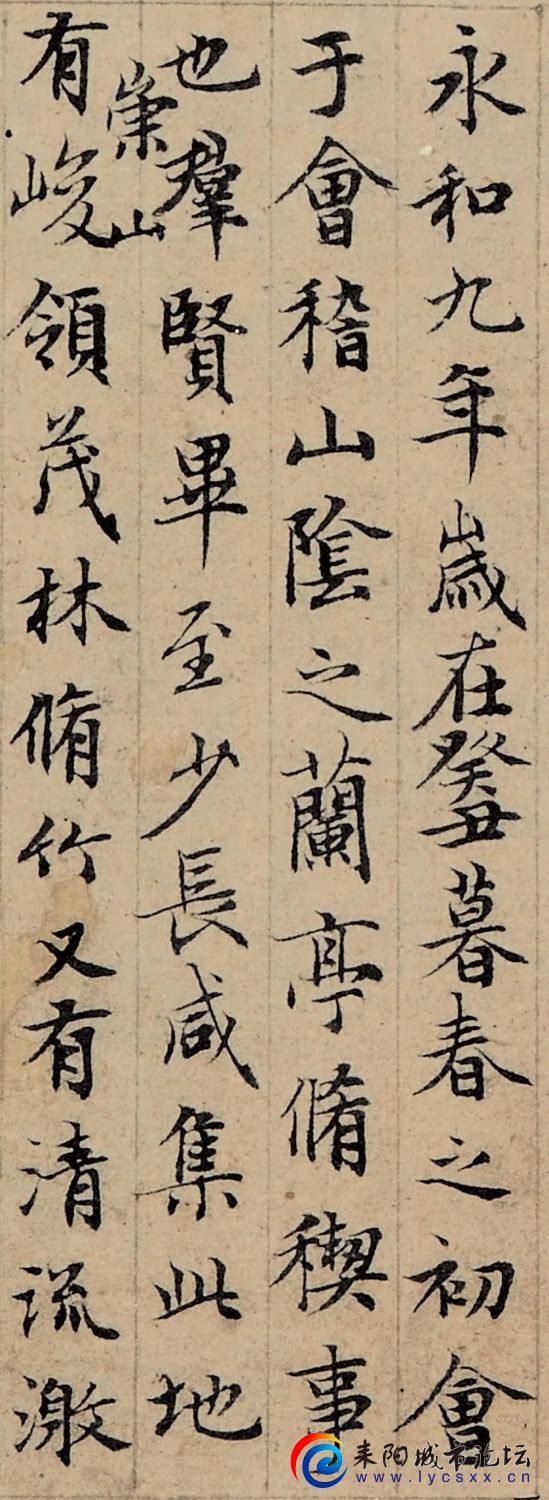 永和九年歲在癸丑暮春之初會
于會稽山陰之蘭亭脩稧事
也羣賢畢至少長咸集此地
有崇山峻領茂林脩竹又有清流激
耒阳城市论坛
www.lycsxx.cn